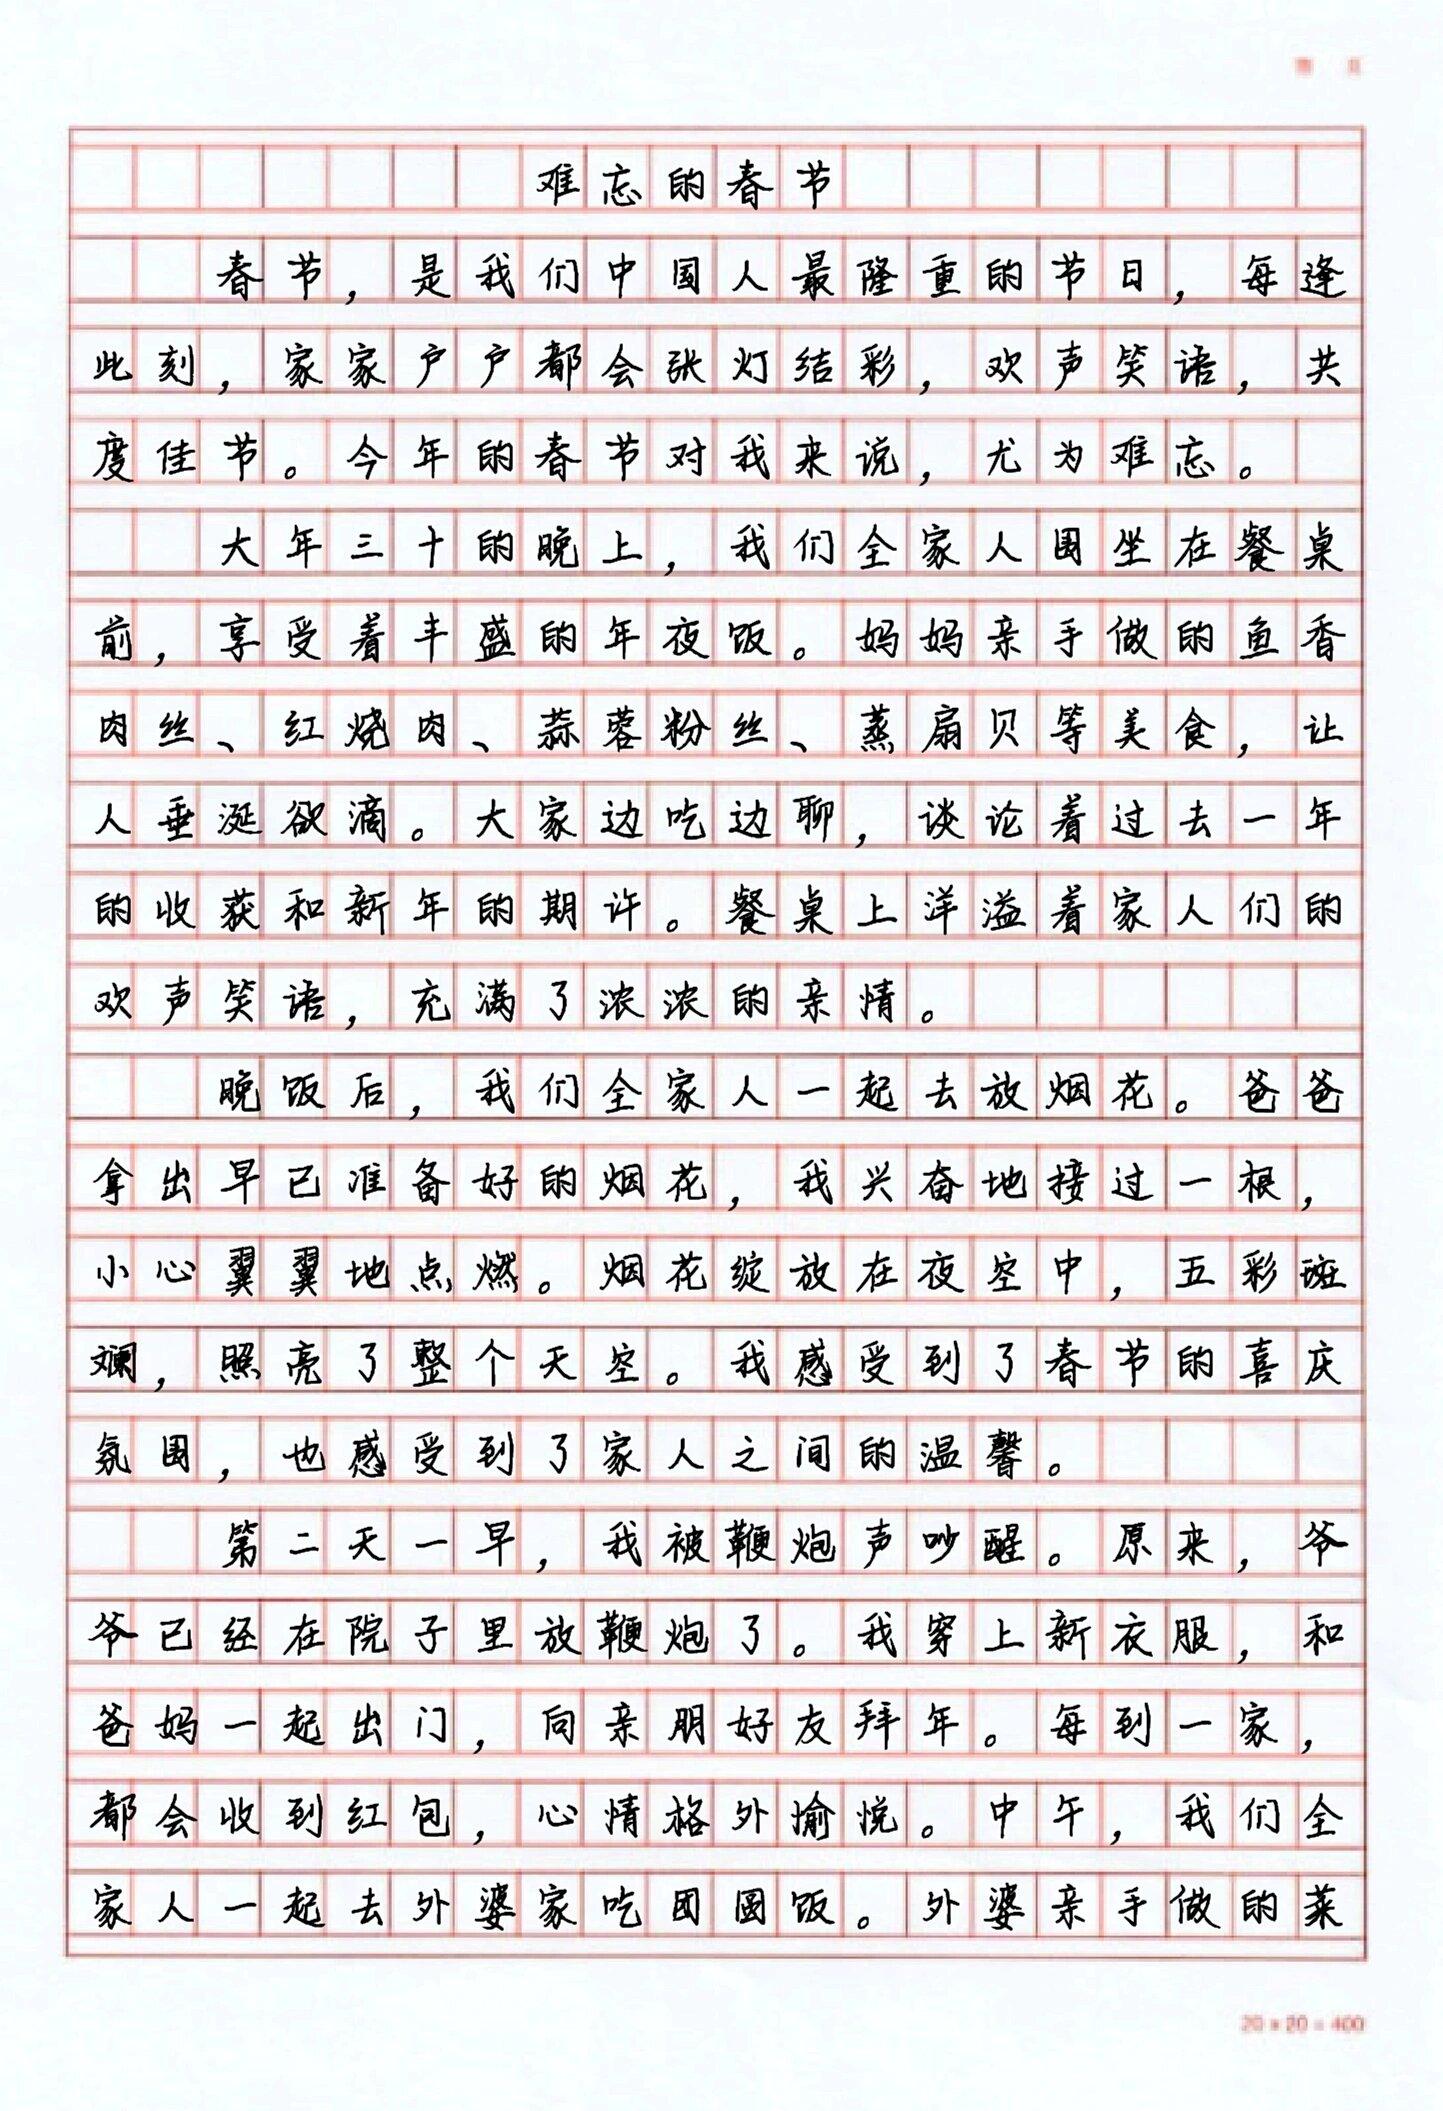 难忘的春节
春节，是我们中国人最隆重的节日，每逢
此刻，家家户户都会张灯结彩，欢声笑语，共
度佳节。今年的春节对我来说，尤为难忘。
大年三十的晚上，我们全家人围坐在餐桌
前，享受着丰盛的年夜饭。妈妈亲手做的鱼香
肉丝、红烧肉、蒜蓉粉丝、蒸扇贝等美食，让
人垂涎欲滴。大家边吃边聊，谈论着过去一年
的收获和新年的期许。餐桌上洋溢着家人们的
欢声笑语，充满了浓浓的亲情。
晚饭后，我们全家人一起去放烟花。爸爸
拿出早已准备好的烟花，我兴奋地接过一根，
小心翼翼地点燃。烟花绽放在夜空中，五彩斑
斓，照亮了整个天空。我感受到了春节的喜庆
氛围，也感受到了家人之间的温馨。
第二天一早，我被鞭炮声吵醒。原来，爷
爷已经在院子里放鞭炮了。我穿上新衣服，和
爸妈一起出门，向亲朋好友拜年。每到一家，
都会收到红包，心情格外愉悦。中午，我们全
家人一起去外婆家吃团圆饭。外婆亲手做的菜
20×20=400